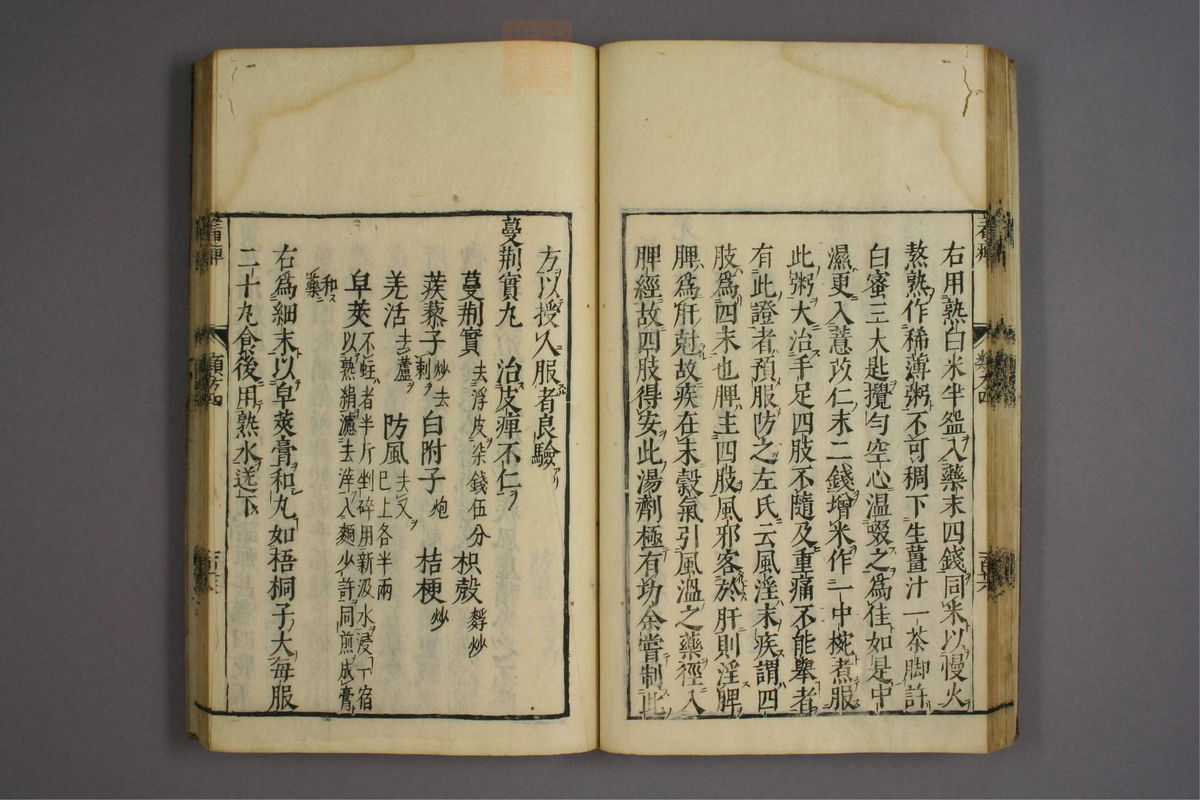 右用熟白米半盌入藥末四錢同米以慢火
熬熟作稀薄粥不可稠下生薑汁一茶脚許
白蜜三大匙攪勻空心溫啜之爲佳如是中
濕更入薏苡仁末二錢增米作一中椀煮服
此粥大治手足四肢不隨及重痛不能舉者
有此證者預服防之左氏云風淫末疾謂四
肢爲四末也脾主四肢風邪客於肝則淫脾
脾爲肝尅故疾在末穀氣引風溫之藥徑入
脾經故四肢得安此湯劑極有功余嘗制此
方以授人服者良驗
蔓荆實丸 治皮痺不仁
蔓荆實去浮皮柒錢伍分 枳殼麩炒
蒺藜子炒去刺 白附子炮 桔梗炒
羌活去蘆 防風去叉已上各半兩
皁莢不蛀者半斤剉碎用新汲水浸一宿
以熟絹濾去滓入麵少許同煎成膏
和藥
右爲細末以皁莢膏和丸如梧桐子大每服
二十丸食後用熟水送下
類方四